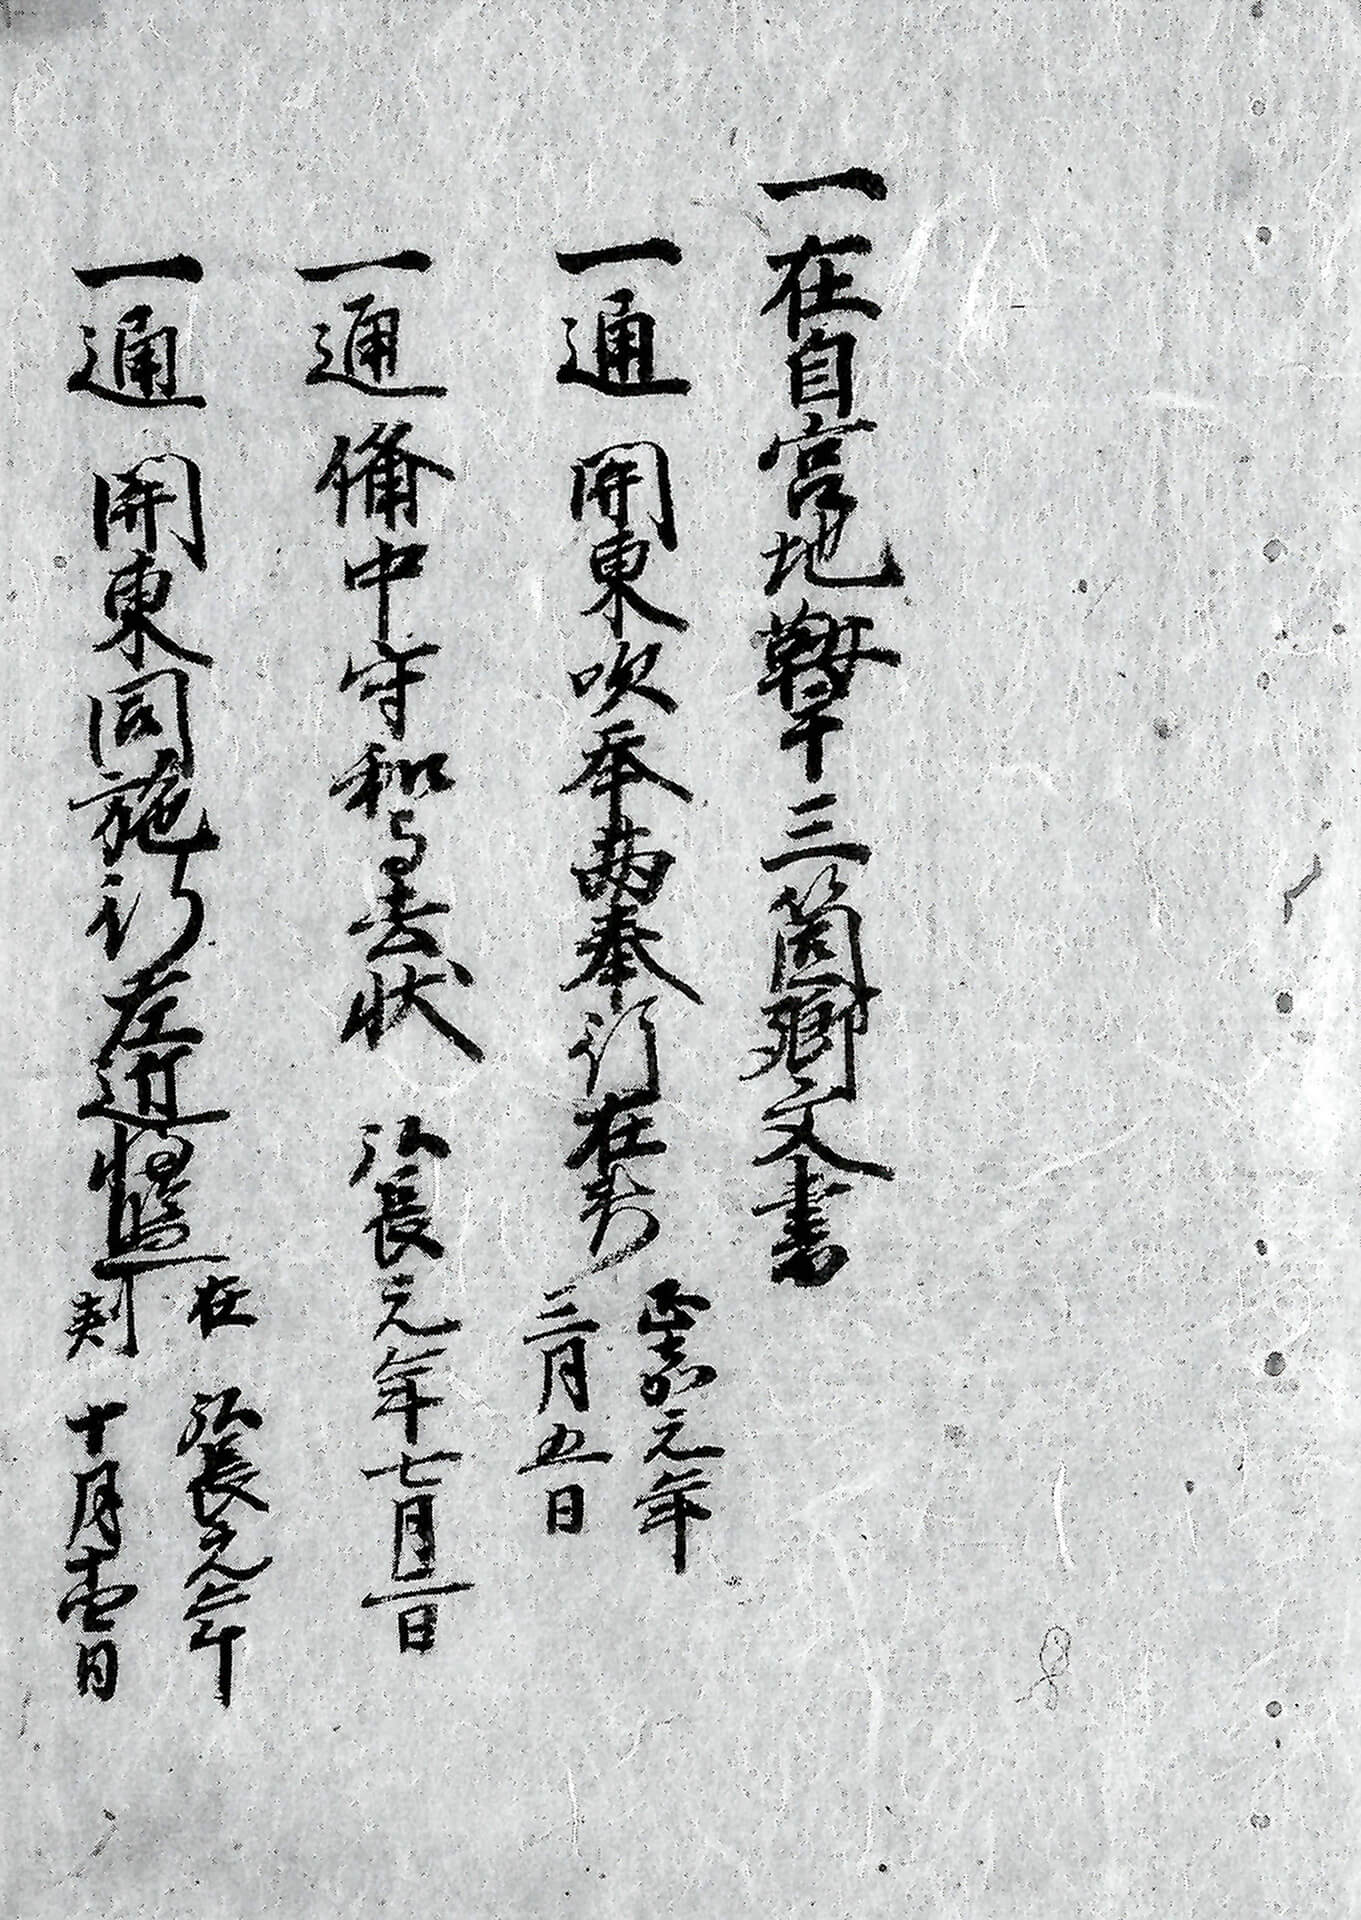 一在自宮地鞍手三箇郷文書
一通 関東吹挙両奉行在判 正嘉元年
三月五日
一通 備中守和与去状 弘長元年七月二日
一通 関東同施行左近将監在判 弘長元年
十月日